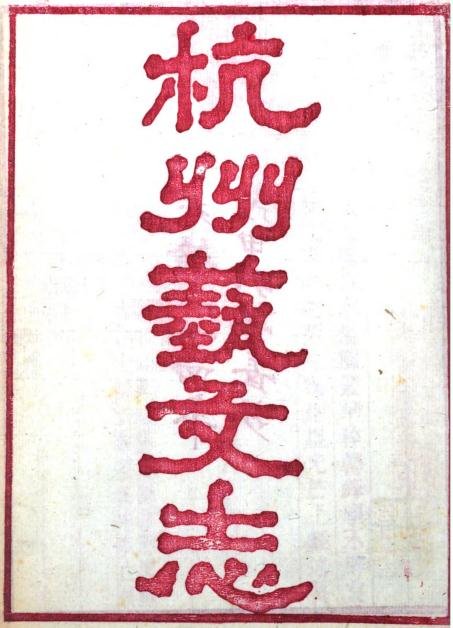 杭州藝文志